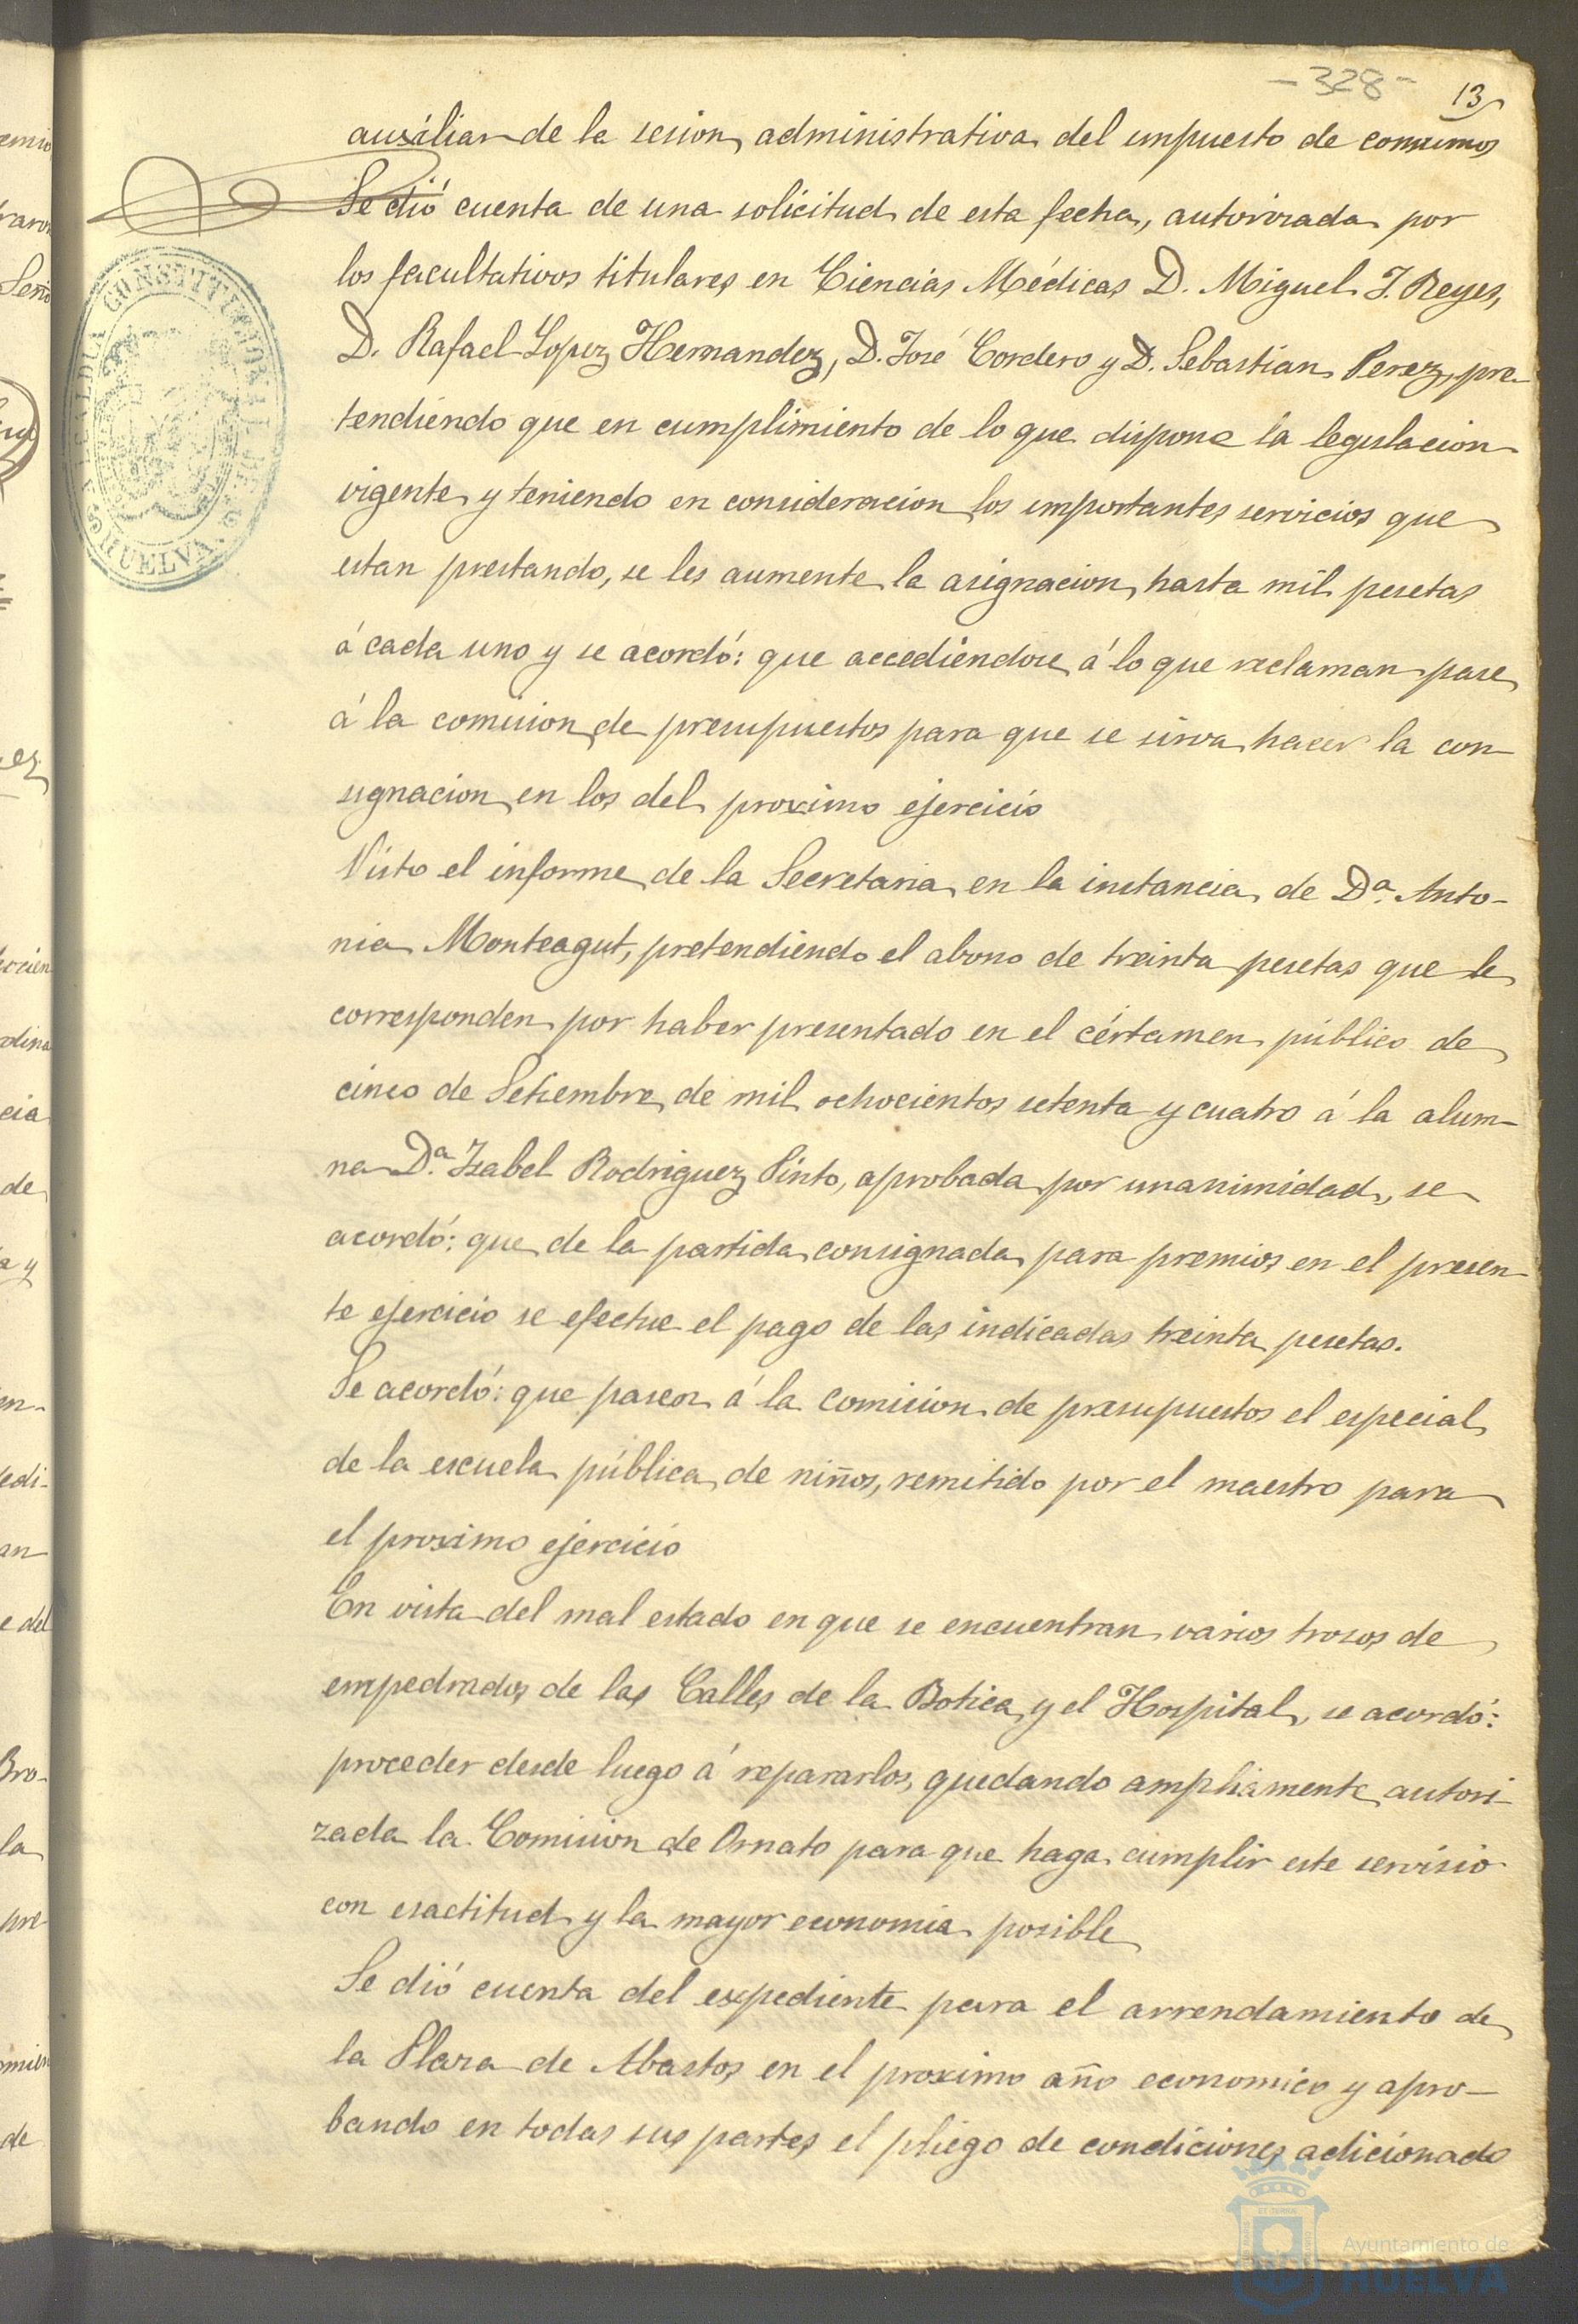 -328-
13
auxiliar de la sesion administrativa del impuesto de consumos
Se dió cuenta de una solicitud de esta fecha, autorizada por
los facultativos titulares en Ciencias Médicas D. Miguel J. Reyes,
D. Rafael Lopez Hernandez, D. José Cordero y D. Sebastian Perez, pre-
tendiendo que en cumplimiento de lo que dispone la legislacion
vigente y teniendo en consideracion los importantes servicios que
estan prestando, se les aumente la asignacion hasta mil pesetas
á cada uno y se acordó: que accediendose á lo que reclaman pase
á la comision de presupuestos para que se sirva hacer la con-
signacion en los del proximo ejercicio
Visto el informe de la Secretaria en la instancia de Dª. Anto-
nia Monteagut, pretendiendo el abono de treinta pesetas que le
corresponden por haber presentado en el cértamen público de
cinco de Setiembre de mil ochocientos setenta y cuatro á la alum-
na Dª. Isabel Rodriguez Pinto, aprobada por unanimidad, se
acordó: que de la partida consignada para premios en el presen-
te ejercicio se efectue el pago de las indicadas treinta pesetas.
Se acordó: que pasen á la comision de presupuestos el especial
de la escuela pública de niños, remitido por el maestro para
el proximo ejercicio
En vista del mal estado en que se encuentran varios trozos de
empedrados de las Calles de la Botica y el Hospital, se acordó:
proceder desde luego á repararlos, quedando ampliamente autori-
zada la Comision de Ornato para que haga cumplir este servisio
con esactitud y la mayor economia posible
Se dió cuenta del expediente para el arrendamiento de
la Plaza de Abastos en el proximo año economico y apro-
bando en todas sus partes el pliego de condiciones adicionado
ALCALDIA CONSTITUCIONAL DE HUELVA
Ayuntamiento de
HUELVA